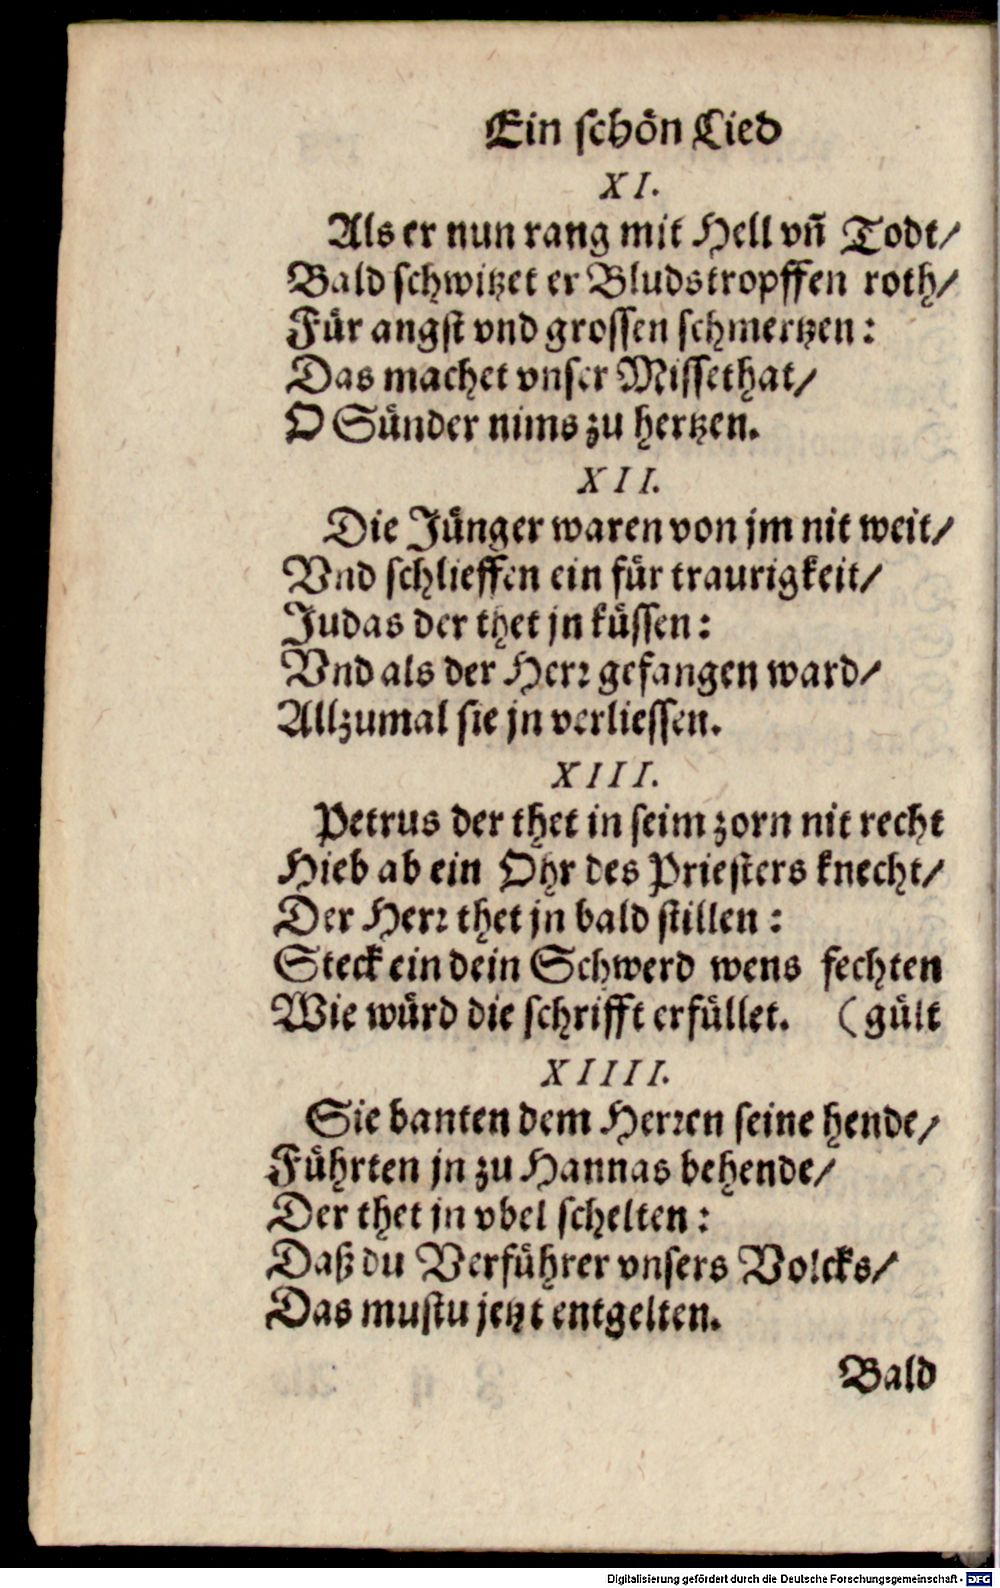 Ein schön Lied
XI.
Als er nun rang mit Hell vñ Todt/
Bald schwitzet er Bludstropffen roth/
Für angst vnd grossen schmertzen:
Das machet vnser Missethat/
O Sünder nims zu hertzen.
XII.
Die Jünger waren von jm nit weit/
Vnd schlieffen ein für traurigkeit/
Judas der thet jn küssen:
Vnd als der Herr gefangen ward/
Allzumal sie jn verliessen.
XIII.
Petrus der thet in seim zorn nit recht
Hieb ab ein Ohr des Priesters knecht/
Der Herr thet jn bald stillen:
Steck ein dein Schwerd wens fechten
Wie würd die schrifft erfüllet. (gült
XIIII.
Sie banten dem Herren seine hende/
Führten jn zu Hannas behende/
Der thet jn vbel schelten:
Daß du Verführer vnsers Volcks/
Das mustu jetzt entgelten.
Bald
Digitalisierung gefördert durch die Deutsche Forschungsgemeinschaft - DFG